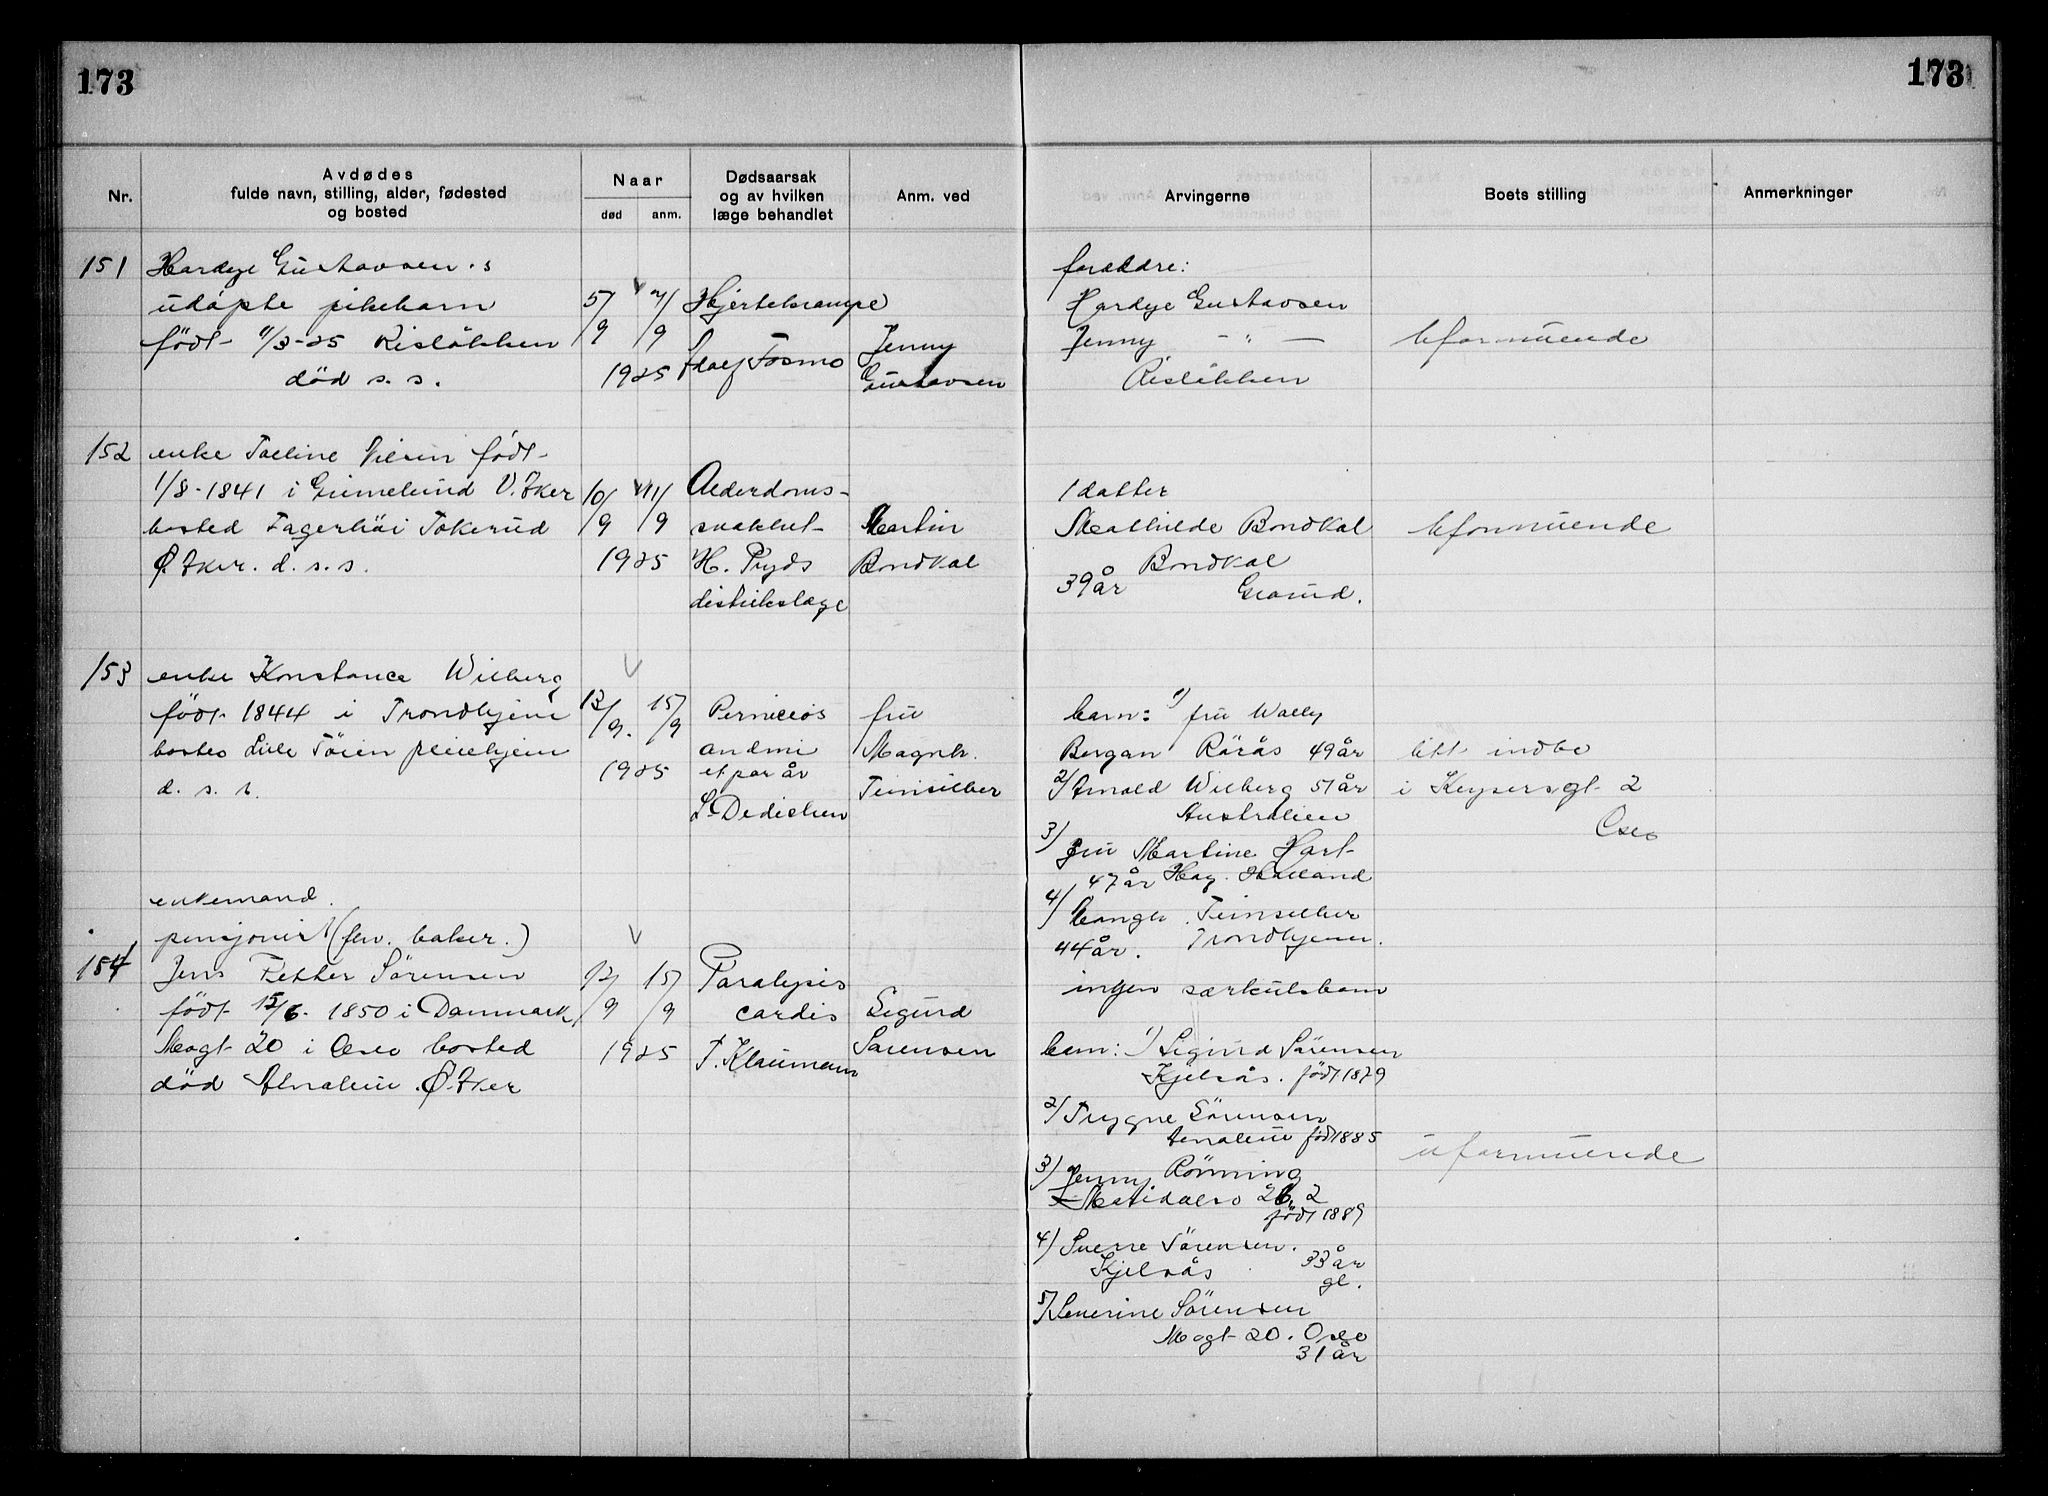 173
173
Nr.
Avdødes
fulde navn, stilling, alder, fødested
og bosted
Naar
død
anm.
Dødsaarsak
og av hvilken
læge behandlet
Anm. ved
Arvingerne
Boets stilling
Anmerkninger
151
Hardye Gustavsen's
udøpte pikebarn
født 11/3-25 Risløkken
død s. s.
5/9 7/9
1925
Hjertekrampe
Adolf Fosmo
Jenny
Gustavsen
forældre:
Hardye Gustavsen
Jenny - " -
Risløkken
Uformuende
152
enke født
1/8-1841 i Grimelund V. Aker
bosted Fagerhöi Tokerud
Ø. Aker. d. s. s.
10/9 11/9
1925
Alderdoms-
svakhet
H. Pryds
distriktslæge
Martin
Bondkal
1 datter
Mathilde Bondkal
Bondkal
39 år Grorud.
Uformuende
153
enke Konstance Wilberg
født 1844 i Trondhjem
bosted Lille Töien pleiehjem
d. s. s.
13/9. 15/9
1925
Perniciøs
anæmi
et par år
L. Dedichen
fru
Magnh.
barn: 1) fru Wally
Bergan Rörås 49 år
2) Arnold Wilberg 51 år
Australien
3) fru Martine Hart
47 år Hag. Holland
4)
44 år. Trondhjem.
ingen særkulsbarn
litt indbo
i Keysersgt 2
Oslo
enkemand.
pensjonist (fhv. baker.)
154
Jens Petter Sörensen
født 15/6. 1850 i Danmark
Mogt 20 i Oslo bosted
død Alnabru. Ø. Aker
12/9 15/9
1925
Paralysis
cordis
T. Klaumann
Sigurd
Sørensen
barn: 1) Sigurd Sörensen
Kjelsås. født 1879
2) Trygve Sörensen
Alnabru født 1885
3) Jenny Rönning
26. 2
født 1889
4) Sverre Sörensen.
Kjelsås 33 år
gl.
5) Severine Sörensen
Mogt 20. Oslo
31 år
uformuende